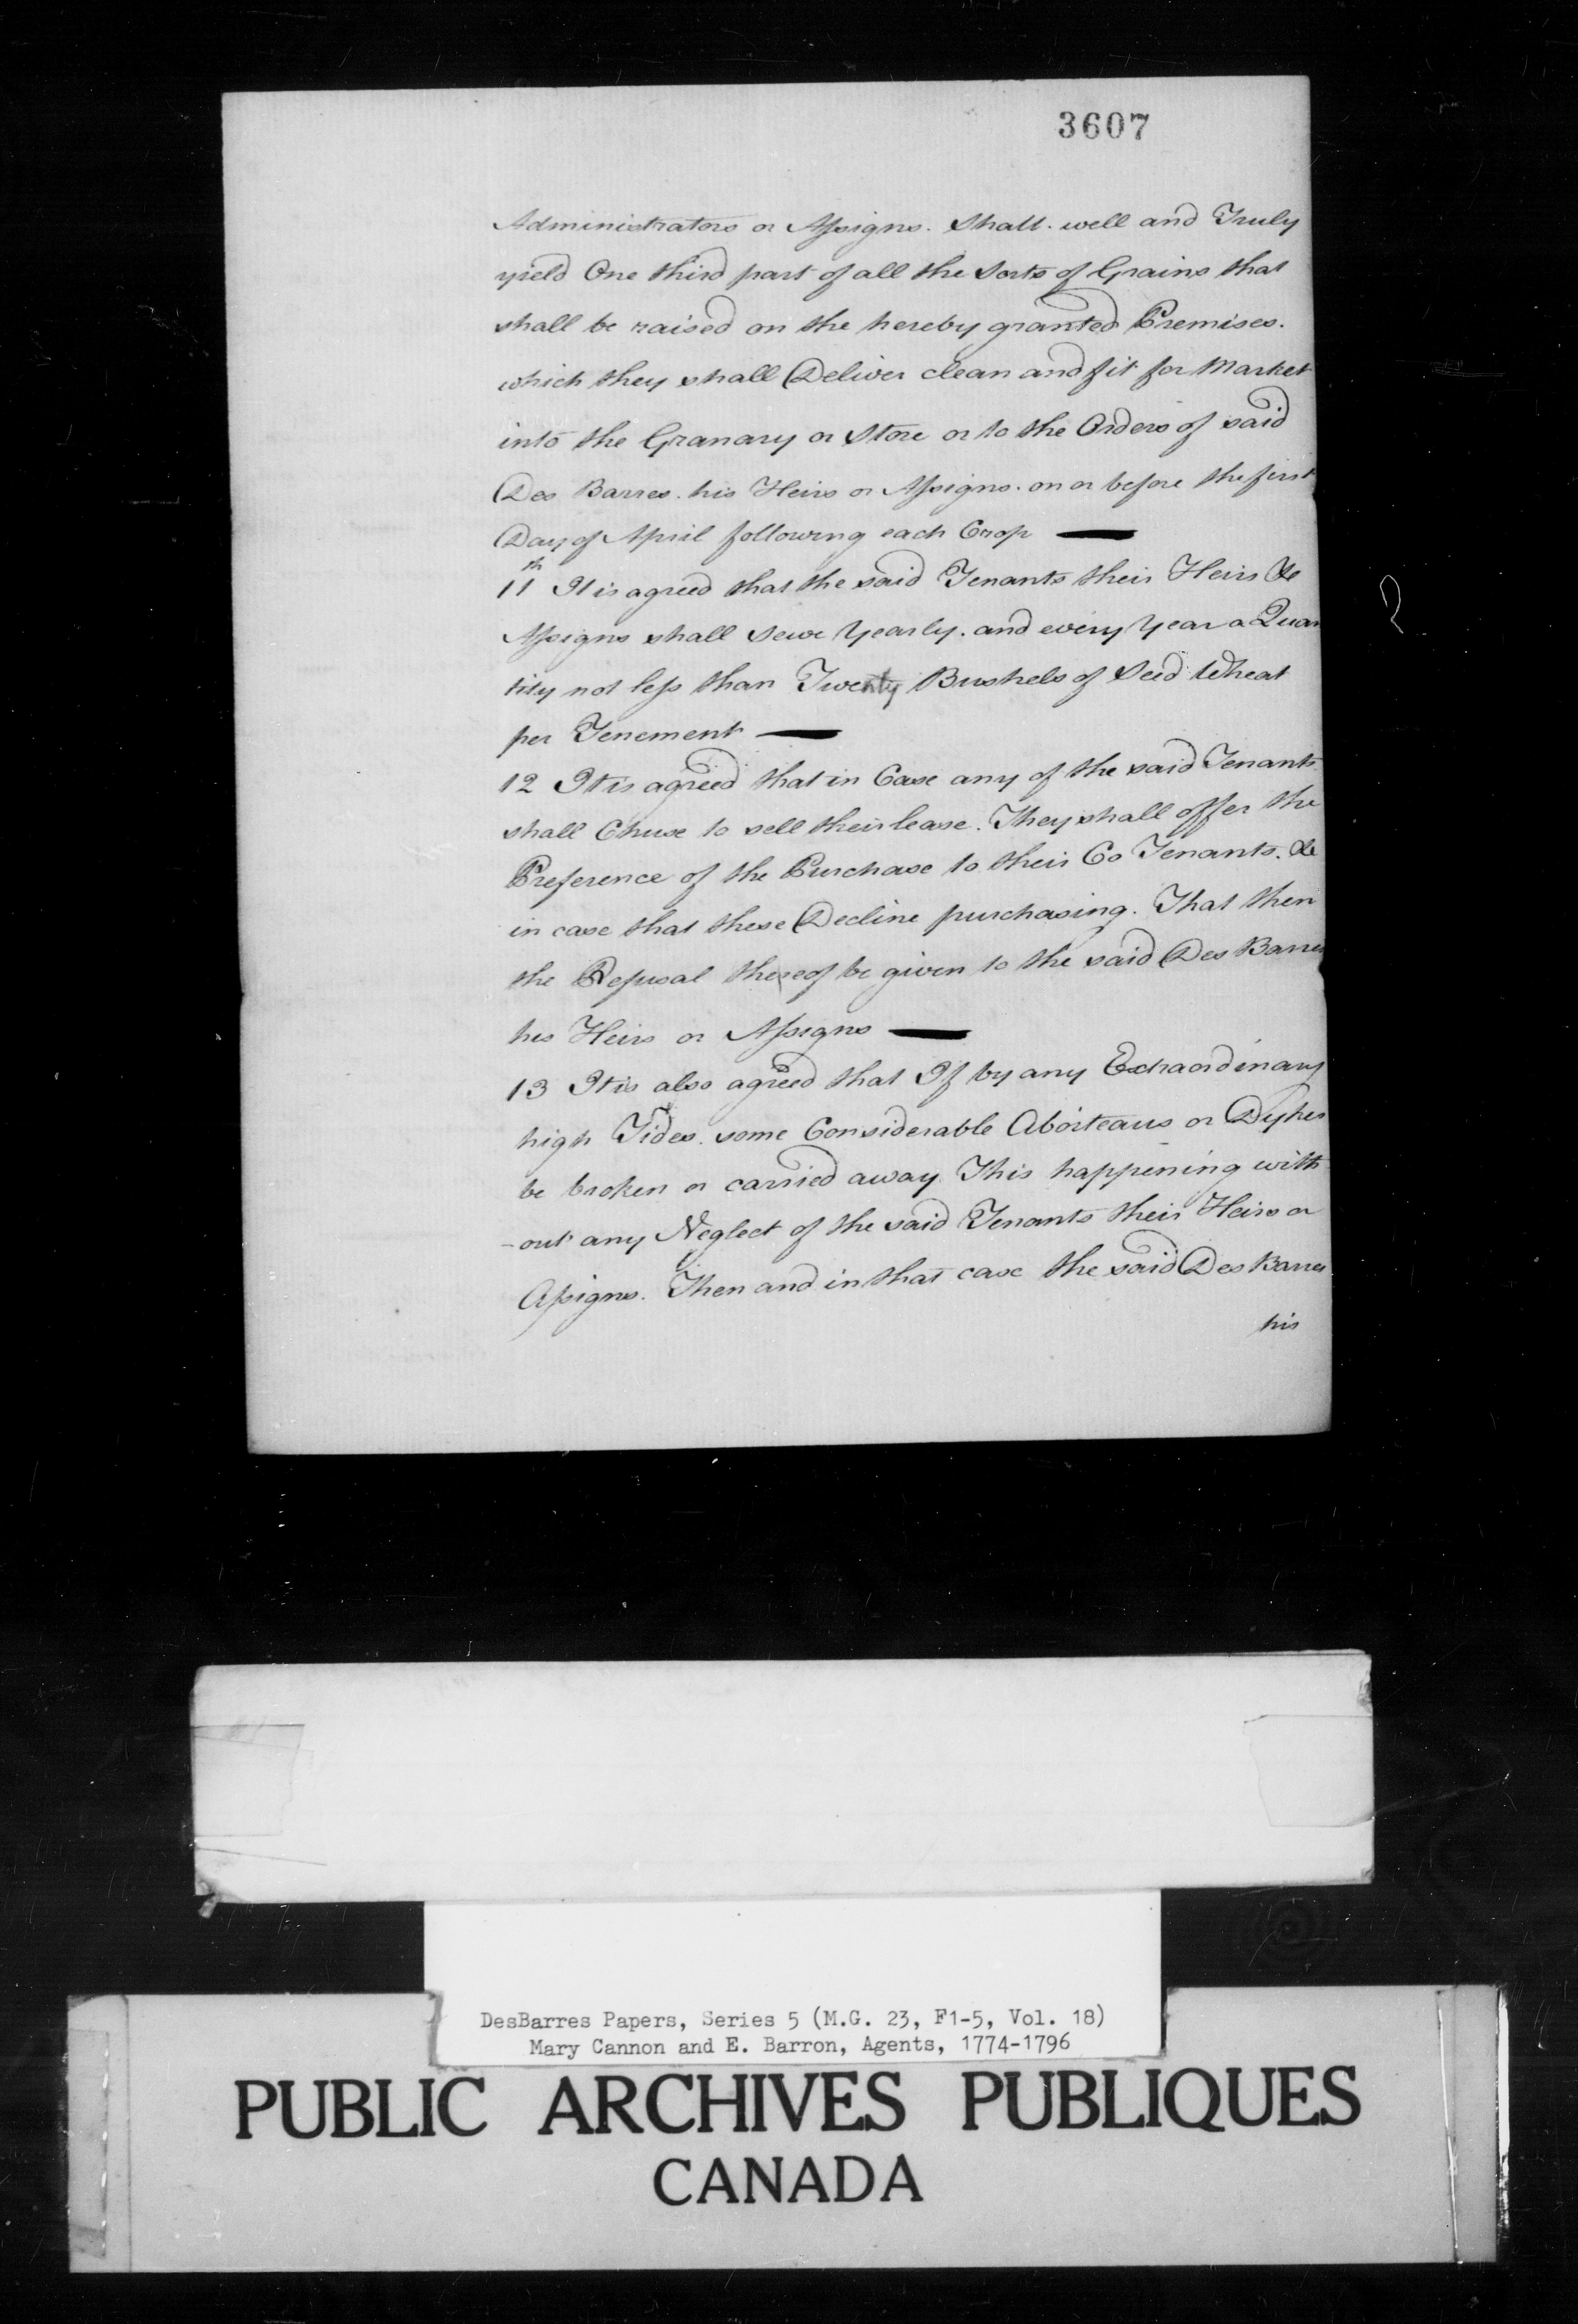 3607
Administrators or Assigns. Shall. well and Truly
yield One third part of all the Sorts of Grains that
shall be raised on the hereby granted Premises.
which they shall Deliver clean and fit for Market
into the Granary or Store or to the Orders of said
Des Barres. his Heirs or Assigns. on or before the first
Day of April following each Crop —
11th It is agreed that the said Tenants their Heirs &
Assigns shall sewe Yearly. and every Year a Quan
tity not less than Twenty Bushels of Seed Wheat
per Tenement —
12 It is agreed that in Case any of the said Tenants
shall Chuse to sell their lease. They shall offer the
Preference of the Purchase to their Co Tenants. &
in case that these Decline purchasing. That then
the Refusal thereof be given to the said Des Barres
his Heirs or Assigns —
13 It is also agreed that If by any Extraordinary
high Tides. some Considerable Aboiteaus or Dykes
be broken or carried away This happening with
-out any Neglect of the said Tenants their Heirs or
Assigns. Then and in that case the said Des Barres
his
DesBarres Papers, Series 5 (M.G. 23, F1-5, Vol. 18)
Mary Cannon and E. Barron, Agents, 1774-1796
PUBLIC ARCHIVES PUBLIQUES
CANADA